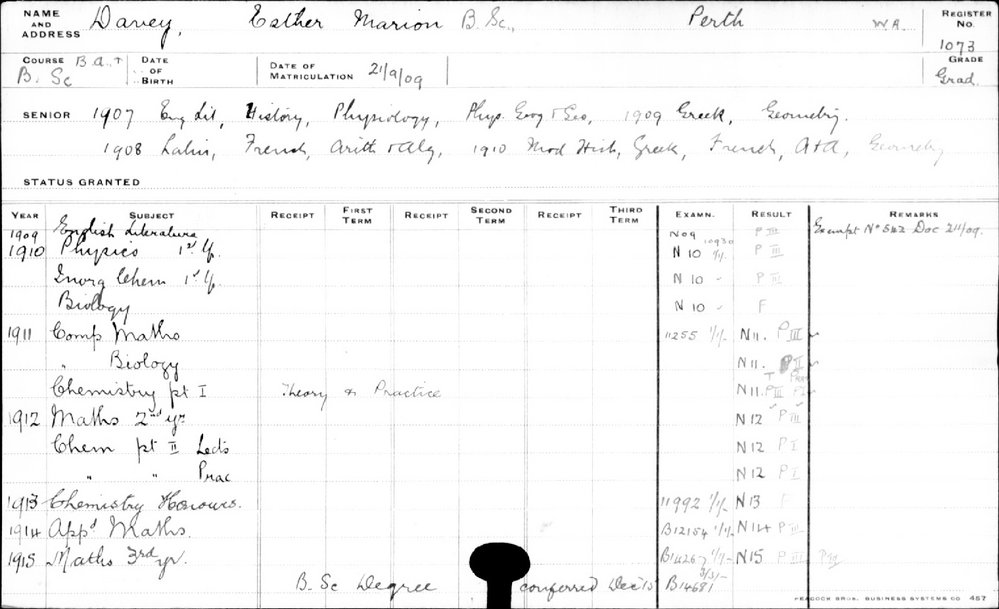 NAME AND ADDRESS Davey, Esther Marion B. Sc., Perth W.A. REGISTER No. 1073
COURSE B.A., + B. Sc DATE OF BIRTH DATE OF MATRICULATION 21/9/09 GRADE Grad.
SENIOR 1907 Eng Lit, History, Physiology, Phys. Geog + Geo, 1909 Greek, Geometry.
1908 Latin, French, Arith + Alg, 1910 Mod Hist, Greek, French, A+A, Geometry
STATUS GRANTED
YEAR SUBJECT RECEIPT FIRST TERM RECEIPT SECOND TERM RECEIPT THIRD TERM EXAMN. RESULT REMARKS
1909 English Literature N09 P III Exempt No 542 Doc 211/09.
1910 Physics 1st yr. N 10 10930 1/1/- P III
Inorg Chem 1st yr. N 10 - P III
Biology N 10 - F
1911 Comp Maths 11255 1/1/- N11. P III
" Biology N11. P II
Chemistry pt I Theory & Practice N11. T P III Prac
1912 Maths 2nd yr N12 P III
Chem pt II Lects N12 P I
" " Prac N12 P I
1913 Chemistry Honours. 11992 1/1/- N13 F
1914 Appd Maths. B12154 1/1/- N14 P III
1915 Maths 3rd yr. B14267 1/1/- N15 P III
B. Sc Degree conferred Dec 15 B14681 3/3/-
PEACOCK BROS. BUSINESS SYSTEMS CO 457